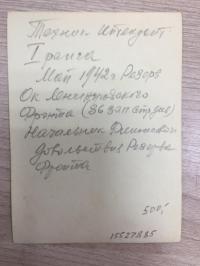 Техник Интендант
I ранга
Май 1942г Резерв
Ок Ленинградского
Фронта (36 зап стр див)
Начальник
довольствия Резерва
Фронта
500,-
15527885